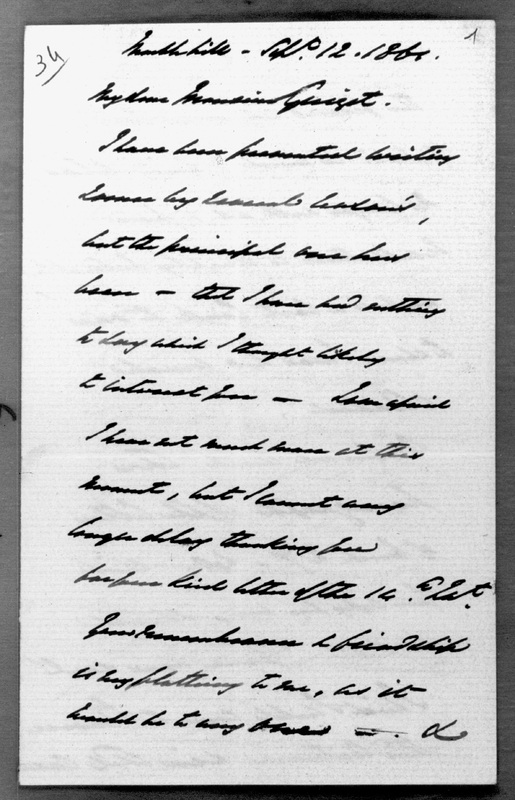 34 1
Sept. 12. 186
My dear Monsieur Guizot.
I have been prevented writing
sooner by several reasons,
but the principal one has
been — that I have had nothing
to say which I thought likely
to interest you — I am afraid
I have not much more at this
moment, but I cannot any
longer delay thanking you
for your kind letter of the 14th
Your remembrance & friendship
is very flattering to me, as it
would be to any ones —. &